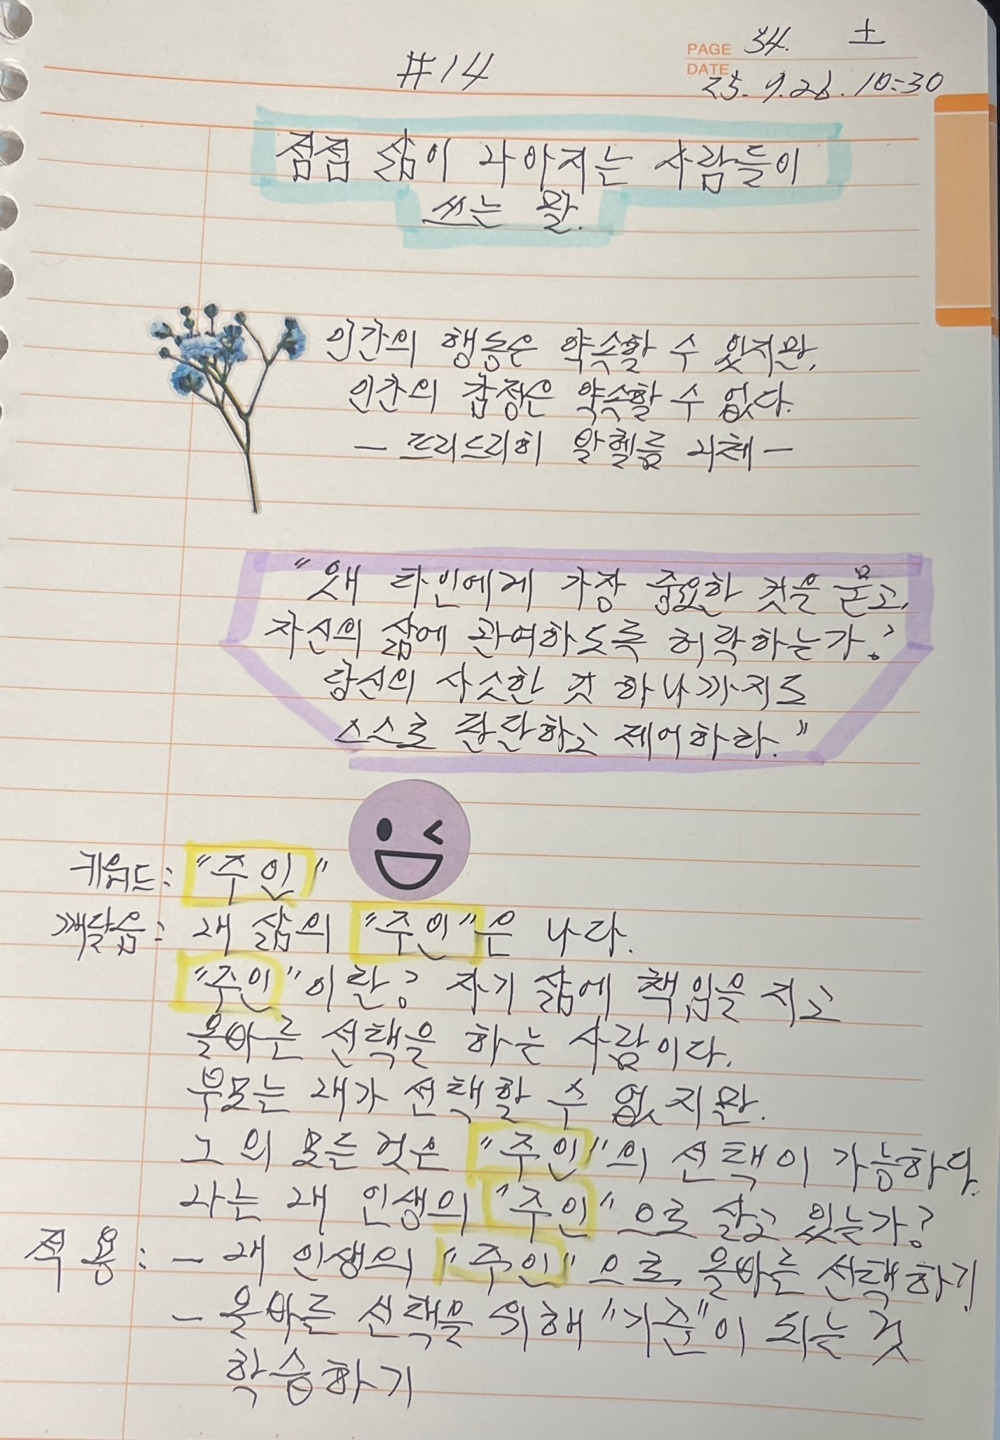 PAGE 34. 土
#14
DATE 25.9.26. 10:30
점점 삶이 나아지는 사람들이
쓰는 말.
인간의 행동은 약속할 수 있지만,
인간의 감정은 약속할 수 없다.
- 프리드리히 빌헬름 니체 -
"왜 타인에게 가장 중요한 것을 묻고,
자신의 삶에 관여하도록 허락하는가?
당신의 사소한 것 하나까지도
스스로 판단하고 제어하라."
키워드: "주인"
깨달음: 내 삶의 "주인"은 나다.
"주인"이란? 자기 삶에 책임을 지고
올바른 선택을 하는 사람이다.
부모는 내가 선택할 수 없지만.
그 외 모든 것은 "주인"의 선택이 가능하다.
나는 내 인생의 "주인"으로 살고 있는가?
적용: - 내 인생의 "주인"으로 올바른 선택하기
- 올바른 선택을 위해 "기준"이 되는 것
학습하기